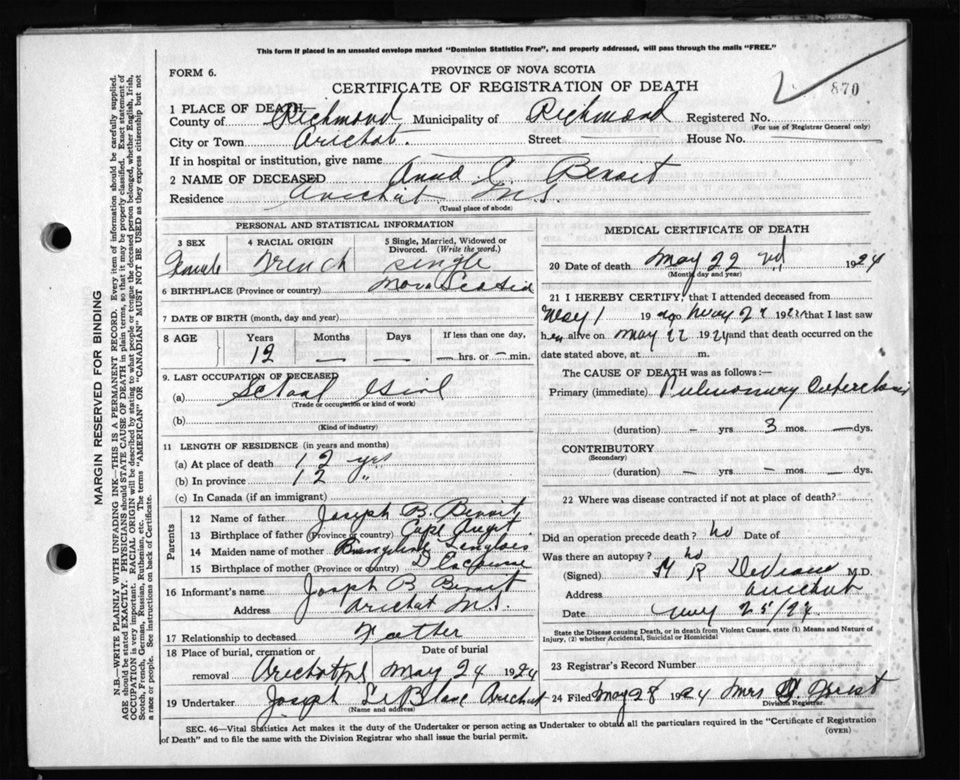 This form if placed in an unsealed envelope marked "Dominion Statistics Free", and properly addressed, will pass through the mails "FREE."
FORM 6. PROVINCE OF NOVA SCOTIA
CERTIFICATE OF REGISTRATION OF DEATH 870
1 PLACE OF DEATH—
County of Richmond Municipality of Richmond Registered No.
(For use of Registrar General only)
City or Town Arichat Street House No.
If in hospital or institution, give name
2 NAME OF DECEASED C. Benoit
Residence Arichat N.S.
(Usual place of abode)
PERSONAL AND STATISTICAL INFORMATION
3 SEX 4 RACIAL ORIGIN 5 Single, Married, Widowed or Divorced. (Write the word.)
Female French single
6 BIRTHPLACE (Province or country) Nova Scotia
7 DATE OF BIRTH (month, day and year)
8 AGE Years Months Days If less than one day,
12 — — — hrs. or — min.
9. LAST OCCUPATION OF DECEASED
(a) School Girl
(Trade or occupation or kind of work)
(b)
(Kind of industry)
11 LENGTH OF RESIDENCE (in years and months)
(a) At place of death 12 yrs
(b) In province 12 "
(c) In Canada (if an immigrant)
Parents
12 Name of father Joseph B. Benoit
13 Birthplace of father (Province or country) Cape Auget
14 Maiden name of mother Langlois
15 Birthplace of mother (Province or country) D'Escousse
16 Informant's name Joseph B Benoit
Address Arichat N.S.
17 Relationship to deceased Father
18 Place of burial, cremation or removal Date of burial
Arichat N.S May 24 1924
19 Undertaker Joseph LeBlanc Arichat
(Name and address)
MEDICAL CERTIFICATE OF DEATH
20 Date of death May 22nd 1924
(Month, day and year)
21 I HEREBY CERTIFY, that I attended deceased from
May 1 19 to May 22 1924 that I last saw
her alive on May 22 1924 and that death occurred on the
date stated above, at m.
The CAUSE OF DEATH was as follows:—
Primary (immediate) Pulmonary tuberculosis
(duration) — yrs 3 mos. — dys.
CONTRIBUTORY
(Secondary)
(duration) — yrs. — mos. — dys.
22 Where was disease contracted if not at place of death?
Did an operation precede death? no Date of
Was there an autopsy? no
(Signed) R M.D.
Address Arichat
Date May 25/24
State the Disease causing Death, or in death from Violent Causes, state (1) Means and Nature of Injury, (2) whether Accidental, Suicidal or Homicidal
23 Registrar's Record Number
24 Filed May 28 1924 Mrs
Division Registrar.
SEC. 46—Vital Statistics Act makes it the duty of the Undertaker or person acting as Undertaker to obtain all the particulars required in the "Certificate of Registration
of Death" and to file the same with the Division Registrar who shall issue the burial permit. (OVER)
MARGIN RESERVED FOR BINDING
N.B.—WRITE PLAINLY WITH UNFADING INK—THIS IS A PERMANENT RECORD. Every item of information should be carefully supplied.
AGE should be stated EXACTLY. PHYSICIANS should STATE CAUSE OF DEATH in plain terms, so that it may be properly classified. Exact statement of
OCCUPATION is very important. RACIAL ORIGIN will be described by stating to what people or tongue the deceased person belonged, whether English, Irish,
Scotch, French, German, Russian, Ruthenian, etc. The terms "AMERICAN" or "CANADIAN" MUST NOT BE USED as they express citizenship but not
a race or people. See instructions on back of Certificate.